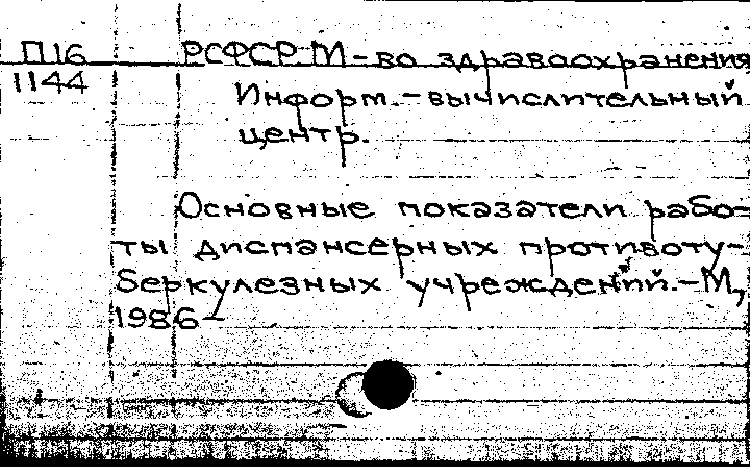 П16 РСФСР. М-во здравоохранения
1144
Информ.-вычислительный
центр.
Основные показатели рабо-
ты диспансерных противоту-
беркулезных учреждений.-М,
1986-